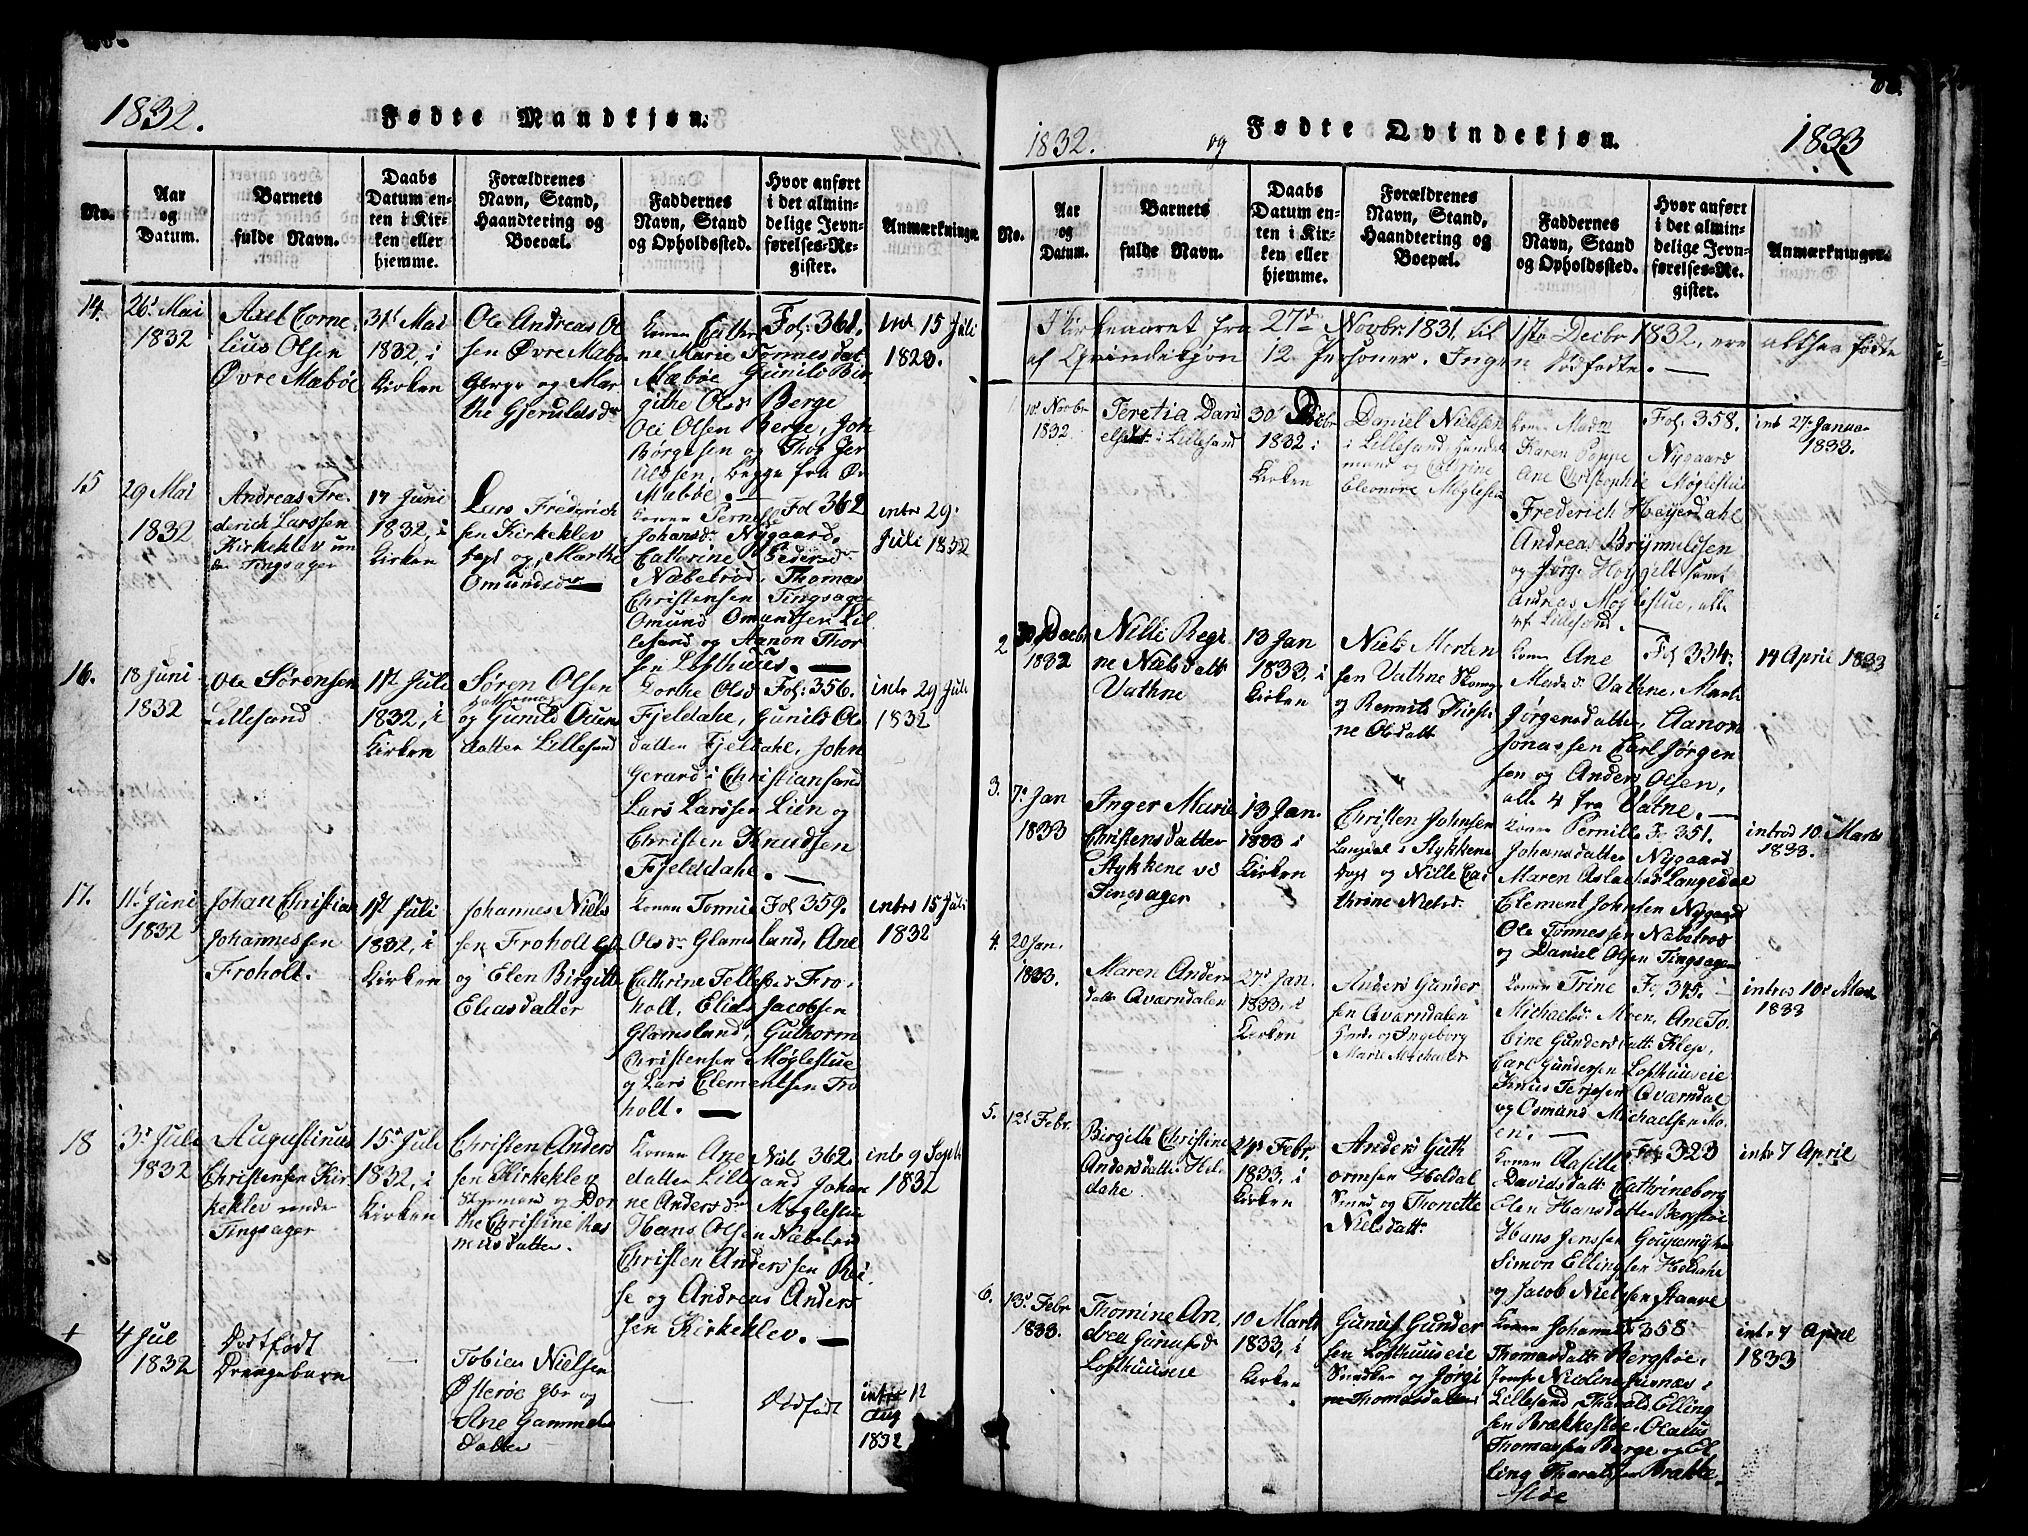 1832.
Fødte Mandkjøn.
No.
Aar
og
Datum.
Barnets
fulde Navn.
Daabs
Datum en-
ten i Kir-
ken eller
hjemme.
Forældrenes
Navn, Stand,
Haandtering og
Boepæl.
Faddernes
Navn, Stand
og Opholdssted.
Hvor anført
i det almin-
delige Jevn-
førelses-Re-
gister.
Anmærkninger
14.
26 Mai
1832
Axel Corne-
lius Olsen
Øvre Mæbøe
31t Mai
1832, i
Kirken
Ole Andreas Ol
sen Øvre Mæbø
og Mar
the Gjeruldsdr
Konen Cathr
ne Marie Tønnesdat
Mæbøe Gunild Bir
githe Olsdr Berge
Ole Olsen Berge, Joh
Børgesen og Thor Jer
uldsen, begge fra Øv
Mæbøe.
Fol: 361.
int 15 Juli
1823.
15
29 Mai
1832
Andreas Fre-
derich Larssen
Kirkeklev un
der Tingsager
17 Juni
1832, i
Kirken
Lars Frederich
sen Kirkeklev
og Marthe
Omundsdr
Konen Pernille
Johansdr Nygaard,
Cathrine Pedersdr
Næbelrød, Thomas
Christensen Tingsager
Omund Omundsen Lil
lesand og Aanon Thor
sen Lofthuus.
Fol 362
intr 29.
Juli 1832
16.
18 Juni
1832
Ole Sørensen
Lillesand
1st Juli
1832, i
Kirken
Søren Olsen
og Gunild Oeun
datter Lillesand
Dorthe Olsd
Fjeldahe, Gunild Ols
datter Fjeldahe, John
Gerard i Christiansand
Lars Larssen Lien og
Christen Knudsen
Fjelddahe.
Fol: 356.
intr 29 Juli
1832
17.
11t Juni
1832
Johan Christian
Johannessen
Froholt.
1st Juli
1832, i
Kirken
Johannes Niels
sen Froholt
og Elen Birgitte
Eliasdatter
Konen Tomine
Olsdr Glamsland, Ane
Cathrine Tellefsd Fro-
holt, Elias Jacobsen
Glamsland, Guthorm
Christensen Møglestue
og Lars Clementsen Fro
holt.
Fol 359.
intro 15 Juli
1832
18
3d Juli
1832
Augustinus
Christensen Kir-
kekklev under
Tingsager
15d Juli
1832, i
Kirken
Christen Anders
sen Kirkeklev
Styrmand og Dor
the Christine Ras
musdatter.
Konen Ane Niel
datter Lillesand Johan
ne Andersdr Møglestue
Hans Olsen Næbelrød
Christen Anderssen Rei
se og Andreas Anders
sen Kirkeklev.
362.
intr 9 Septb
1832
+
4 Jul
1832
Dødfødt
Drengebarn
Tobias Nielsen
Østerøe gbr og
Ane Gammels
datter
Dødfødt
intro 12
Aug
1832
1832. og
Fødte Qvindekjøn.
1833
No.
Aar
og
Datum.
Barnets
fulde Navn.
Daabs
Datum en-
ten i Kir-
ken eller
hjemme.
Forældrenes
Navn, Stand,
Haandtering og
Boepæl.
Faddernes
Navn, Stand
og Opholdssted.
Hvor anført
i det almin-
delige Jevn-
førelses-Re-
gister.
Anmærkninger.
I Kirkeaaret fra 27de Novbr 1831, til 1ste Decbr 1832, ere altsaa fødte
af Qvindekjøn 12 Personer. Ingen Dødfødte.
1
10 Novbr
1832.
Teretia Dani
elsdt i Lillesand
30 Decbr
1832 i
Kirken
Daniel Nielsen
i Lillesand, Handels
mand og Cathrine
Eleonore Møglestue
Konen Madm
Karen Poppe Nygaard
Ane Christophine Møglestue
Frederich Heyerdahl
Andreas Brynnildsen
og Jørge samt
Andreas Møglestue, alle
af Lillesand.
Fol: 358.
int 27. Januar
1833.
2
30 Decbr
1832
Nilli Regi-
ne Nielsdatt
Vathne
13 Jan
1833, i
Kirken
Niels Morten
sen Vathne
og Kirsti
ne Olsdatt
Konen Ane
Madsdr Vathne, Mart
Jørgensdatter, Aanon
Jonassen Carl Jørgen
sen og Anders Olsen,
alle 4 fra Vatne.
Fol 334.
14 April 1833
3.
7. Jan
1833
Inger Marie
Christensdatter
Stykkene ved
Tingsager
13 Jan.
1833 i
Kirken
Christen Johnsen
Langedal i Stykkene
og Nille Cat
thrine Nielsdr
Konen Pernille
Johansdatter Nygaard
Maren Aslachsd Langedal
Clement Johnsen Nygaard
Ole Tønnessen Næbelrød
og Daniel Olsen Tingsager
Fo 351.
introd 10. Marts
1833.
4.
20 Jan.
1833.
Maren Anders
datter Qvarndalen
27d Jan.
1833, i
Kirken
Anders Gunder
sen Qvarndalen
og Ingeborg
Marie Michaelsd
Konen Trine
Michaelsdr Moen, Ane To
bine Gundersdatt Klep,
Carl Gundersen Lofthuuseie
Knud Terjesen Qvarndal
og Osmund Michaelsen Mo-
en.
Fo 345.
introd 10d Mart
1833
5.
12d Febr.
Birgitte Christine
Andersdatter Hel
dahe.
24d Febr.
1833, i
Kirken
Anders Guth
ormsen Heldal
Smed og Thonette
Nielsdatt
Konen Aasille
Davidsdatt Cathrineborg
Elen Hansdatter Bergstøe
Hans Jenssen
Simon Ellingsen Heldahe
og Jacob Nielssen Staare
Fol 323
intr 7 April
6.
13d Febr
1833.
Thomine An
drea Gunufsd
Lofthuuseie
10 Marts
1833, i
Kirken
Gunuf Gunder
sen Lofthuuseie
Snedker og Jørgi
ne Thomasdatter
Konen Johanne
Thomasdatt Bergstøe,
Jomfr Nicoline i
Lillesand, Tharald Elling
sen Brækkestøe, Olaus
Thomassen Berge og El
ling Tharaldsen Brække-
støe
358
intr 7 April
1833